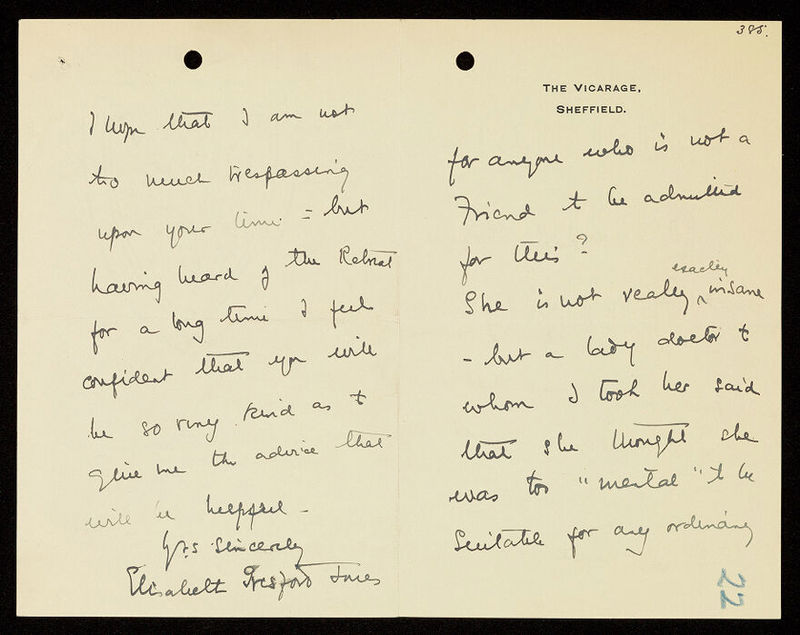 I hope that I am not
too much trespassing
upon your time - but
having heard of the Retreat
for a long time I feel
confident that you will
be so very kind as to
give me the advice that
will be helpful -
Yrs sincerely
Elisabeth Gresford Jones
385.
THE VICARAGE,
SHEFFIELD.
for anyone who is not a
Friend to be admitted
for this?
She is not really exactly insane
- but a lady doctor to
whom I took her said
that she thought she
was too "mental" to be
suitable for any ordinary
22